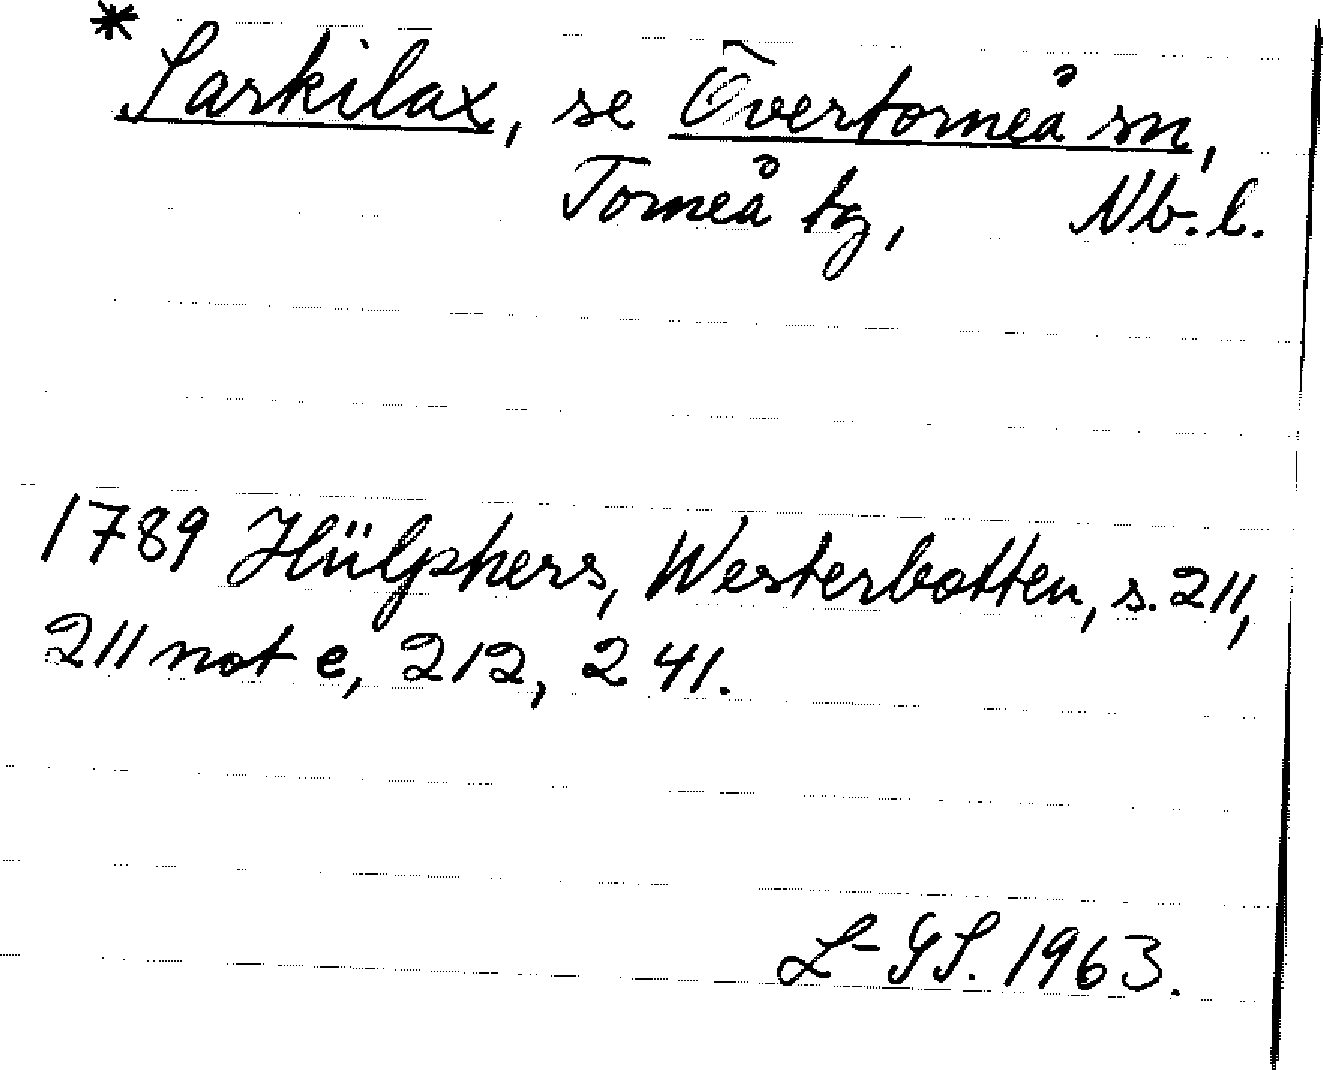 * Sarkilax, se Övertorneå sn,
Torneå tg, Nb. l.
1789 Hülphers, Westerbotten, s. 211,
211 not e, 212, 241.
L-GS. 1963.